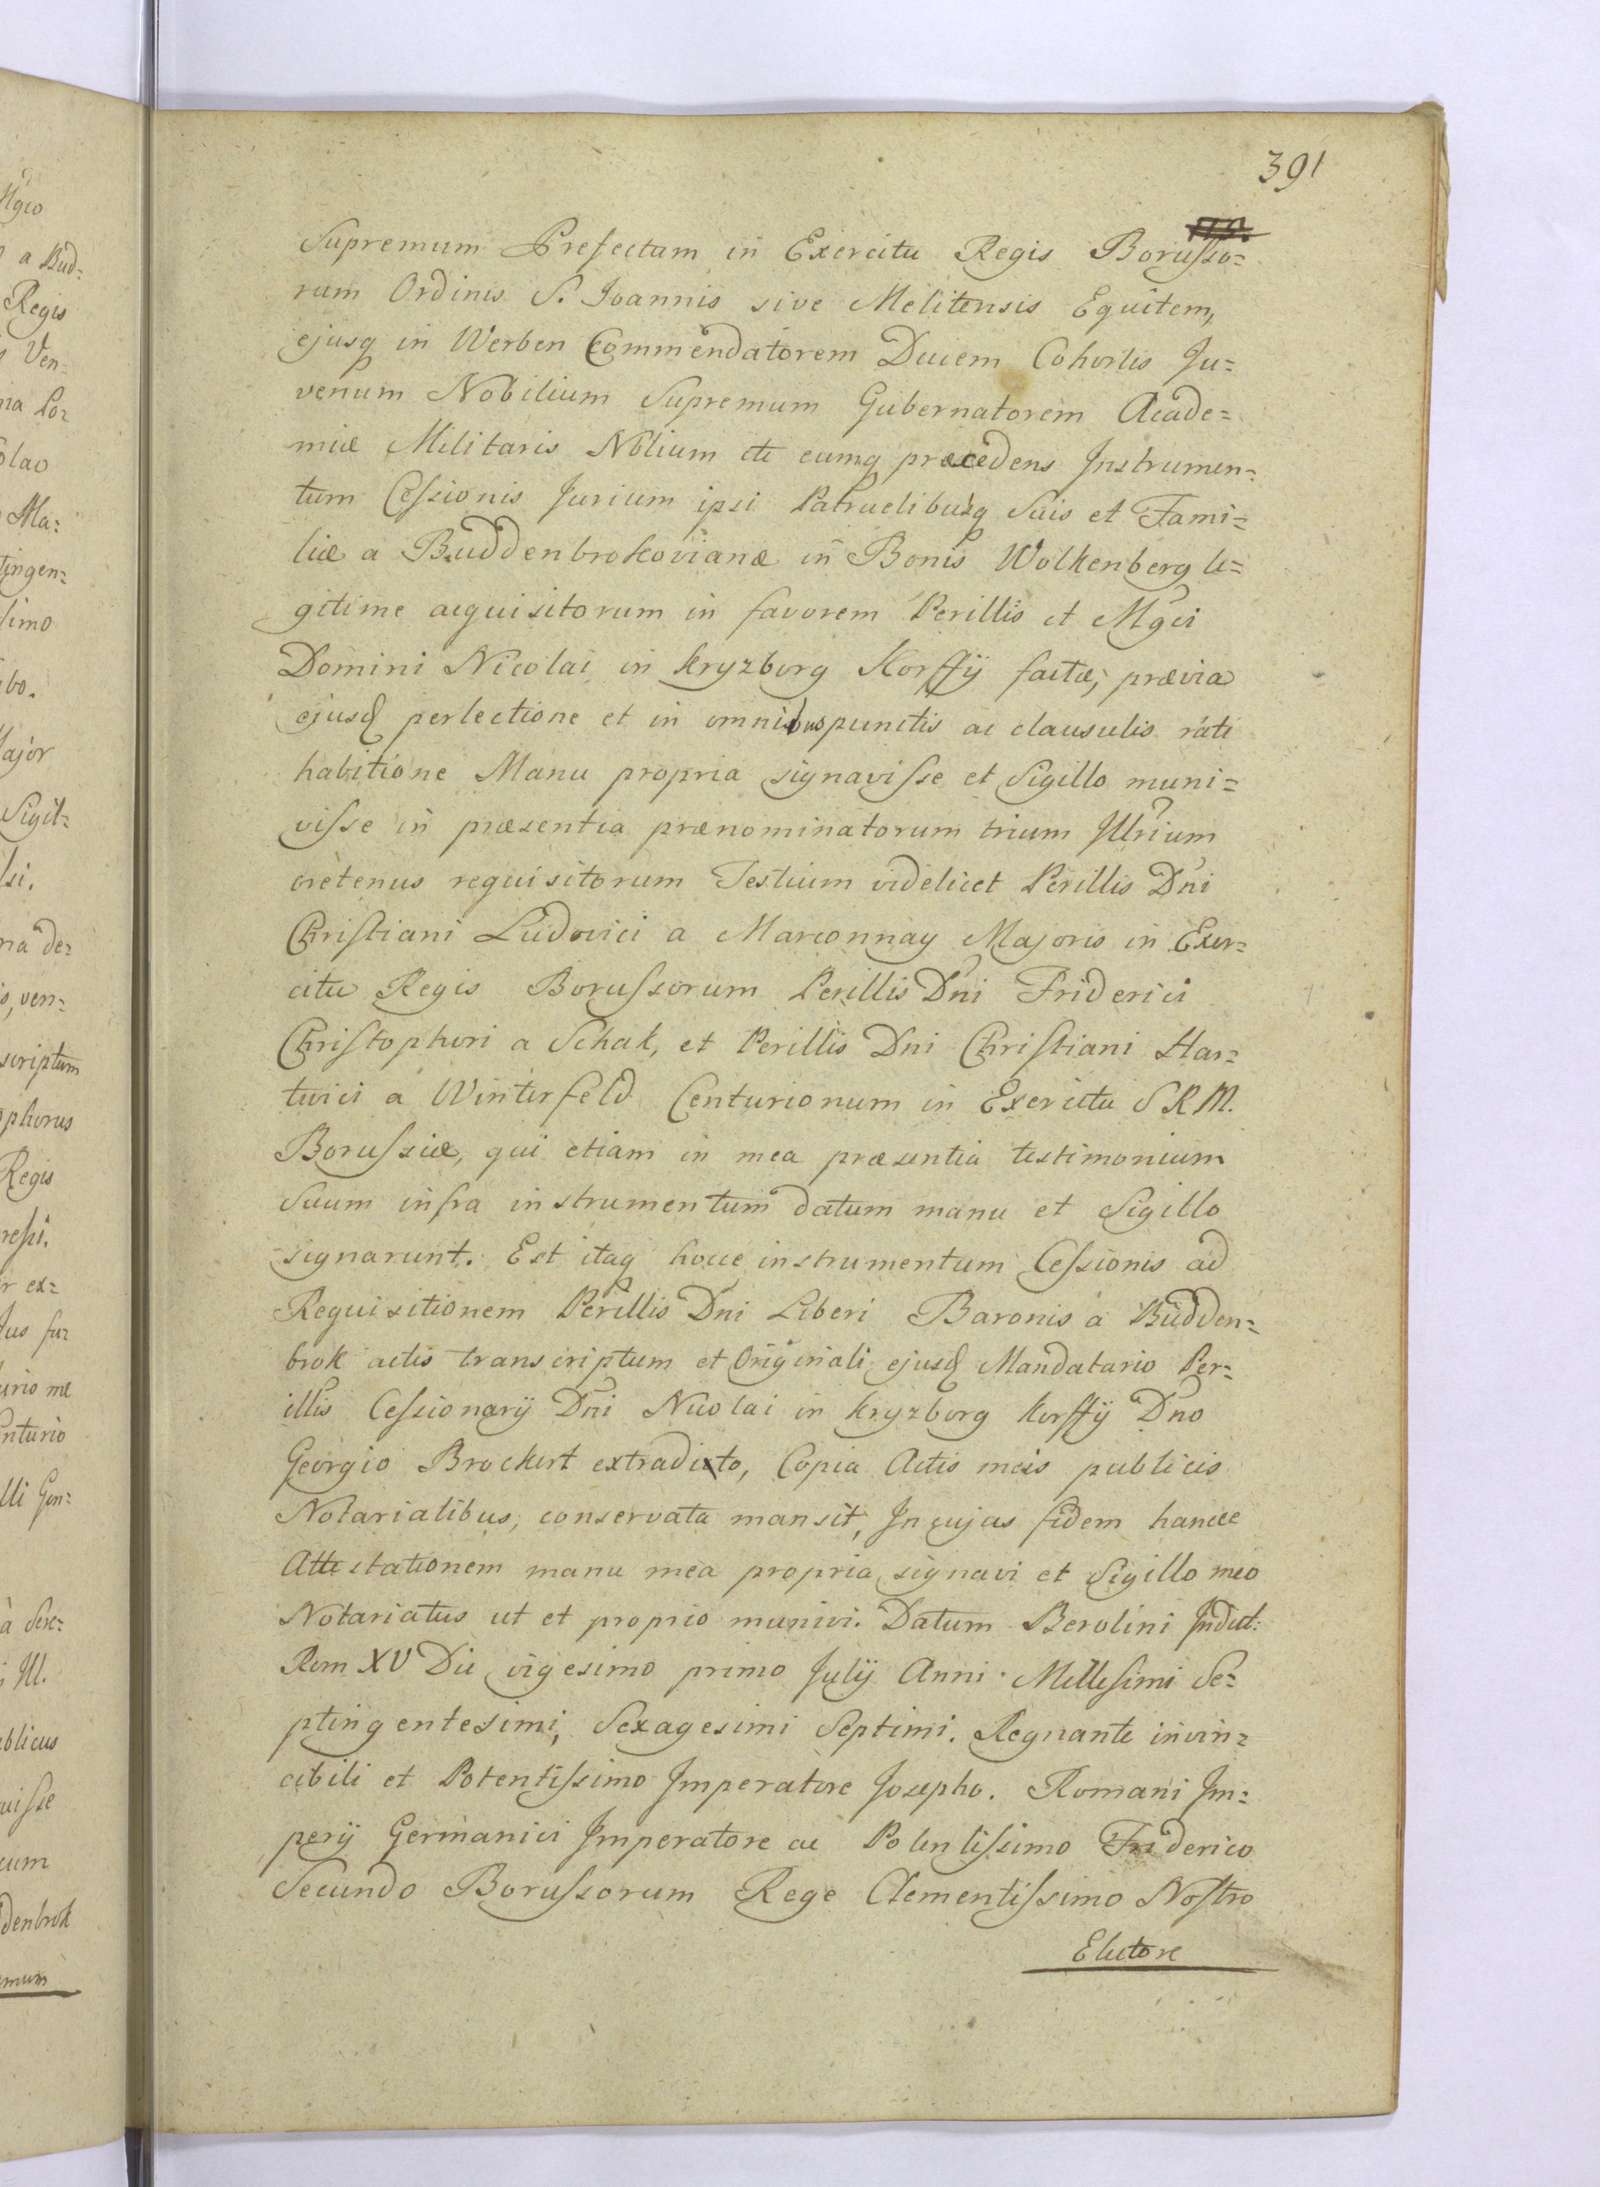 391
Supremum Prefectum in Exercitu Regis Borusso=
rum Ordinis S. Joannis sive Melitensis Equitem,
ejusq in Werben Commendatorem Ducem Cohortis Ju=
venum Nobilium Supremum Gubernatorem Acade=
miæ Militaris Nblium etc eumq præcedens Instrumen=
tum Cessionis Jurium ipsi Patruelibusq Suis et Fami=
liæ a Buddenbrokovianæ in Bonis Wolkenberg le=
gitime acquisitorum in favorem Perillis et Mgci
Domini Nicolai in Kryzborg Korffij factæ, prævia
ejusd perlectione et in omnibus punctis ac clausulis rati
habitione Manu propria signavisse et Sigillo muni=
visse in præsentia prænominatorum trium Illrium
oretenus requisitorum Testium videlicet Perillis Dni
Christiani Ludovici a Marconnay Majoris in Exer=
citu Regis Borussorum Perillis Dni Friderici
Christophori a Schak, et Perillis Dni Christiani Har=
twici a Winterfeld Centurionum in Exercitu S R M.
Borussiæ, qui etiam in mea præsentia testimonium
Suum infra instrumentum datum manu et Sigillo
signarunt. Est itaq hocce instrumentum Cessionis ad
Requisitionem Perillis Dni Liberi Baronis a Budden=
brok actis transcriptum et Originali ejusd Mandatario Per=
illis Cessionarij Dni Nicolai in Kryzborg Korffij Dno
Georgio Brockert extradito, Copia Actis meis publicis
Notarialibus, conservata mansit, In cujus fidem hancce
Attestationem manu mea propria signavi et Sigillo meo
Notariatus ut et proprio munivi. Datum Berolini Indict:
Rom XV Die vigesimo primo Julij Anni Millesimi Se=
ptingentesimi, Sexagesimi Septimi. Regnante invin=
cibili et Potentissimo Imperatore Josepho. Romani Im=
perij Germanici Imperatore ac Potentissimo Friderico
Secundo Borussorum Rege Clementissimo Nostro
Electore